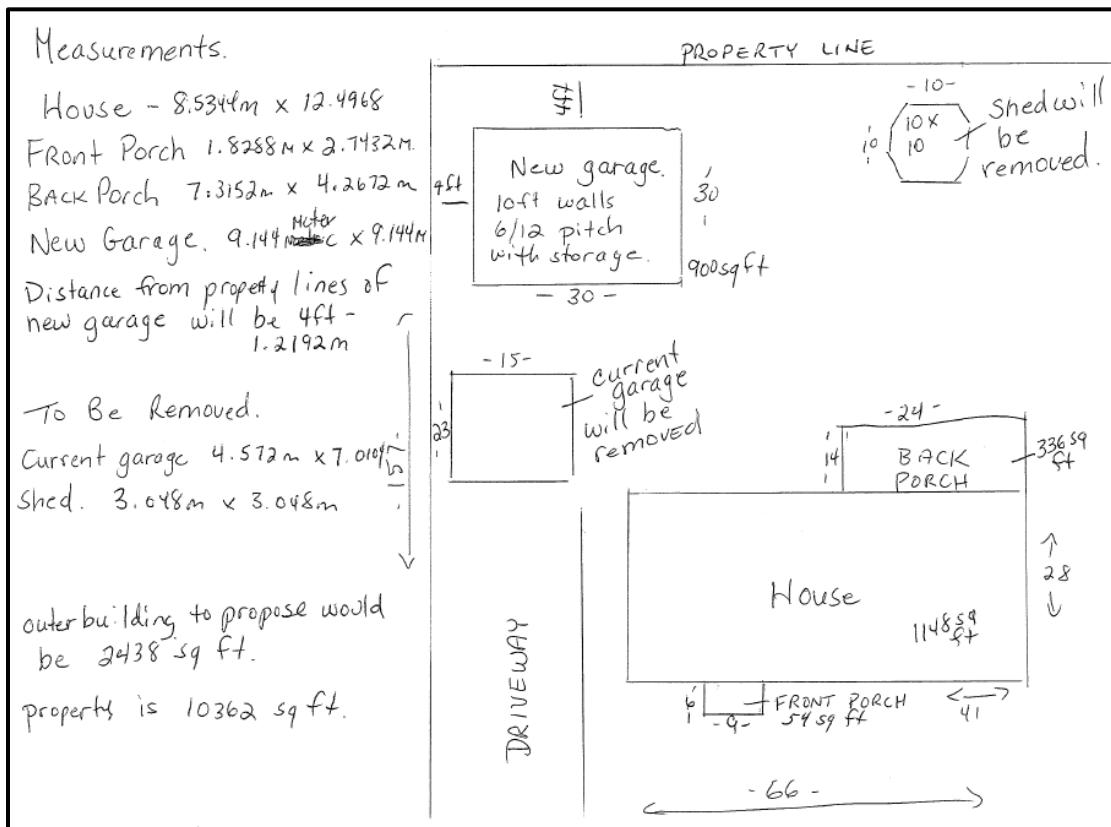 Measurements.
House - 8.5344m x 12.4968
Front Porch 1.8288m x 2.7432m.
BACK Porch 7.3152m x 4.2672m
New Garage. 9.144 Meter x 9.144m
Distance from property lines of
new garage will be 4ft -
1.2192m
To Be Removed.
Current garage 4.572m x 7.0104
Shed. 3.048m x 3.048m
outer building to propose would
be 2438 sq ft.
property is 10362 sq ft.
-157-
PROPERTY LINE
4ft
4ft
New garage.
10ft walls
6/12 pitch
with storage.
- 30 -
30
900sqft
-10-
10
10x
10
Shed will
be
removed.
-15-
-23-
current
garage
will be
removed
DRIVEWAY
-24-
14
BACK
PORCH
336 sq
ft
House
1148 sq
ft
28
6
-9-
FRONT PORCH
54 sq ft
41
-66-